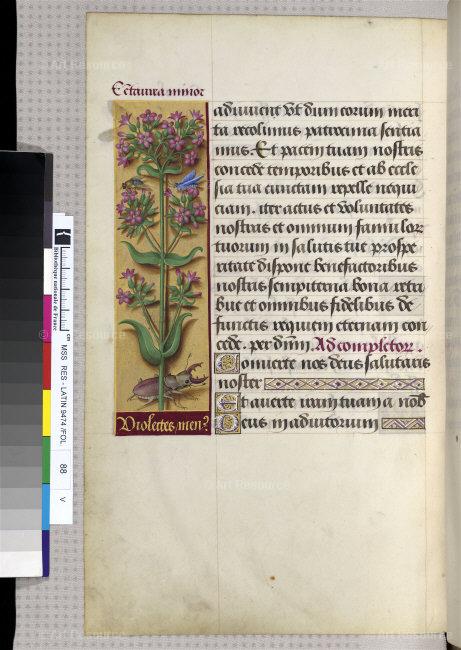 Cētaurea minor
adiuvent Vt dum eorum meri
ta recolimus patrocinia sentia
mus. Et pacem tuam nostris
concede temporibus et ab eccle
sia tua cunctam repelle nequi
ciam. iter actus et Voluntates
nostras et omnium famulor
tuorum in salutis tue prospe
ritate dispone benefactoribus
nostris sempiterna bona retri
bue et omnibus fidelibus de
functis requiem eternam con
cede. per dnm̄. Ad completor.
Conuerte nos deus salutaris
noster
Et auerte iram tuam a nob
Deus in adiutorium
Violettes men?
Bibliothèque nationale de France
cm
MSS RES - LATIN 9474 /FOL
88
V
© Art Resource